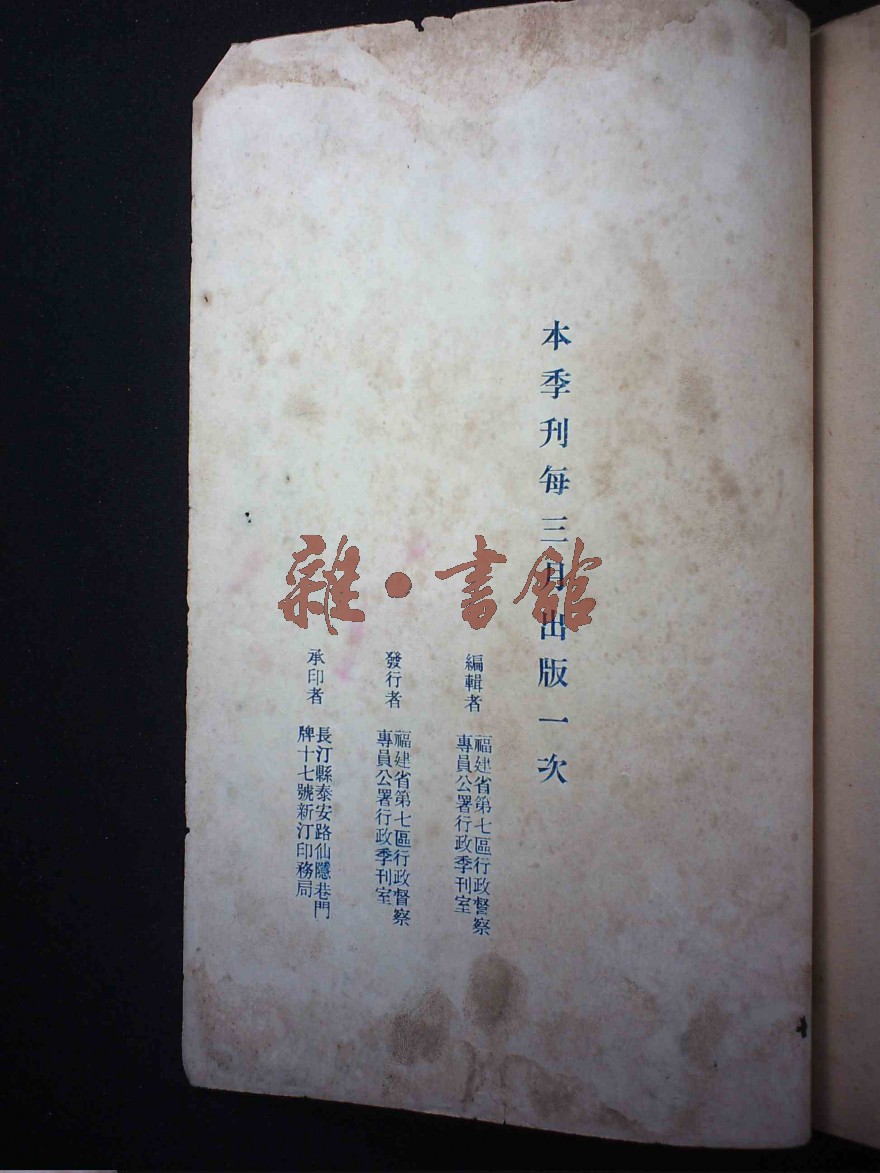 本季刊每三月出版一次
編輯者
福建省第七區行政督察
專員公署行政季刊室
發行者
福建省第七區行政督察
專員公署行政季刊室
承印者
長汀縣泰安路仙隱巷門
牌十七號新汀印務局
雜·書館